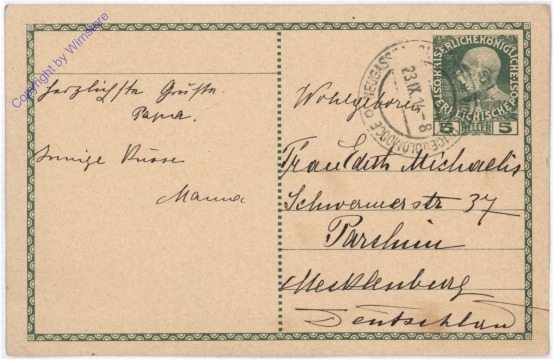 Copyright by Wimstore
Herzlichste Grüsse.
Papa.
Innige Küsse
Mama
KAISERLICHE KÖNIGLICHE
ÖSTERREICHISCHE POST
5 HELLER 5
NEUGASSE
23 IX
8
Wohlgeboren
Frau Edith Michaelis
Schwerinerstr 37
Parchim
Mecklenburg
Deutschland